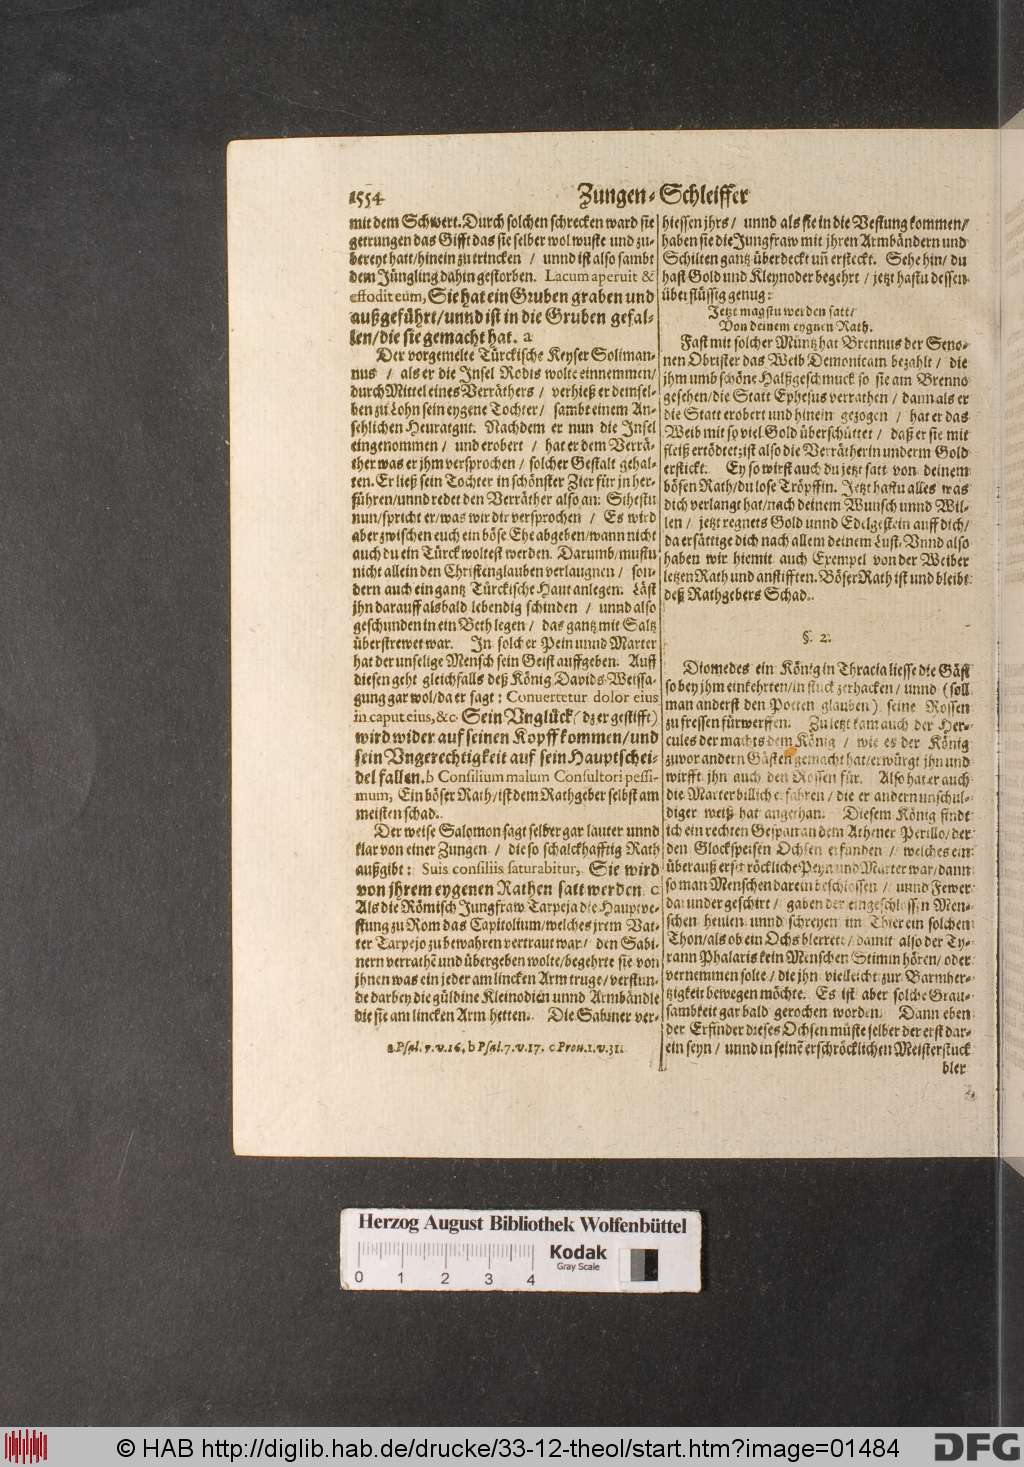 1554 Zungen-Schleiffer
mit dem Schwert. Durch solchen schrecken ward sie
getrungen das Gifft das sie selber wol wuste und zu-
bereyt hatt/hinein zu trincken / unnd ist also sambt
dem Jüngling dahin gestorben. Lacum aperuit &
effodit eum, Sie hat ein Gruben graben und
außgeführt/unnd ist in die Gruben gefal-
len/die sie gemacht hat. a
Der vorgemelte Türckische Keyser Soliman-
nus / als er die Insel Rodis wolte einnemmen/
durch Mittel eines Verräthers / verhieß er demsel-
ben zu Lohn sein eygene Tochter/ sambt einem An-
sehlichen Heuratgut. Nachdem er nun die Insel
eingenommen / und erobert / hat er dem Verrä-
ther was er jhm versprochen / solcher Gestalt gehal-
ten. Er ließ sein Tochter in schönster Zier für jn her-
führen/unnd redet den Verräther also an: Sihestu
nun/spricht er/was wir dir versprochen / Es wird
aber zwischen euch ein böse Ehe abgeben/wann nicht
auch du ein Türck woltest werden. Darumb/mustu
nicht allein den Christenglauben verlaugnen / son-
dern auch ein gantz Türckische Haut anlegen. Läst
jhn darauff alsbald lebendig schinden / unnd also
geschunden in ein Beth legen / das gantz mit Saltz
überstrewet war. In solcher Pein unnd Marter
hat der unselige Mensch sein Geist auffgeben. Auff
diesen geht gleichfalls deß König Davids Weissa-
gung gar wol/da er sagt: Conuertetur dolor eius
in caput eius, &c. Sein Vnglück (dz er gestifft)
wird wider auf seinen Kopff kommen/und
sein Vngerechtigkeit auf sein Hauptschei-
del fallen. b Consilium malum Consultori pessi-
mum, Ein böser Rath/ist dem Rathgeber selbst am
meisten schad.
Der weise Salomon sagt selber gar lauter unnd
klar von einer Zungen / die so schalckhafftig Rath
außgibt: Suis consiliis saturabitur, Sie wird
von jhrem eygenen Rathen satt werden. c
Als die Römisch Jungfraw Tarpeja die Hauptve-
stung zu Rom das Capitolium/welches jrem Vat-
ter Tarpejo zu bewahren vertraut war/ den Sabi-
nern verrathē und übergeben wolte/begehrte sie von
jhnen was ein jeder am lincken Arm truge/verstun-
de darbey die güldine Kleinodien unnd Armbändle
die sie am lincken Arm hetten. Die Sabiner ver-
a Psal. 7. v. 16. b Psal. 7. v. 17. c Prou. 1. v. 31.
hiessen jhrs / unnd als sie in die Vestung kommen/
haben sie die Jungfraw mit jhren Armbändern und
Schilten gantz überdeckt uñ ersteckt. Sehe hin/ du
hast Gold und Kleynoder begehrt / jetzt hastu dessen
überflüssig genug:
Jetzt magstu werden satt/
Von deinem eygnen Rath.
Fast mit solcher Müntz hat Brennus der Seno-
nen Obrister das Weib Demonicam bezahlt / die
jhm umb schöne Halßgeschmuck so sie am Brenno
gesehen/die Statt Ephesus verrathen / dann als er
die Statt erobert und hinein gezogen / hat er das
Weib mit so viel Gold überschüttet / daß er sie mit
fleiß ertödtet; ist also die Verrätherin underm Gold
ersteckt. Ey so wirst auch du jetzt satt von deinem
bösen Rath/du lose Tröpffin. Jetzt hastu alles was
dich verlangt hat/nach deinem Wunsch unnd Wil-
len / jetzt regnets Gold unnd Edelgestein auff dich/
da ersättige dich nach allem deinem Lust. Vnnd also
haben wir hiemit auch Exempel von der Weiber
letzen Rath und anstifften. Böser Rath ist und bleibt
deß Rathgebers Schad.
§. 2.
Diomedes ein König in Thracia liesse die Gäst
so bey jhm einkehrten/in stuck zerhacken / unnd (soll
man anderst den Poeten glauben) seine Rossen
zu fressen fürwerffen. Zu letzt kam auch der Her-
cules der machts dem König / wie es der König
zuvor andern Gästen gemacht hat/erwürgt jhn und
wirfft jhn auch den Rossen für. Also hat er auch
die Marter billich erfahren / die er andern unschul-
diger weiß hat angethan. Diesem König findt
ich ein rechten Gespan an dem Athener Perillo/der
den Glockspeisen Ochsen erfunden / welches ein
überauß erschröckliche Peyn und Marter war/dann
so man Menschen darein beschlossen / unnd Fewer
darunder geschirt / gaben der eingeschlossen Men-
schen heulen unnd schreyen im Thier ein solchen
Thon/als ob ein Ochs blerrete/ damit also der Ty-
rann Phalaris kein Menschen Stimm hören/ oder
vernemmen solte/ die jhn vielleicht zur Barmher-
tzigkeit bewegen möchte. Es ist aber solche Grau-
samkeit gar bald gerochen worden. Dann eben
der Erfinder dieses Ochsen müste selber der erst dar-
ein seyn / unnd in seinē erschröcklichen Meisterstuck
bler
Herzog August Bibliothek Wolfenbüttel
Kodak
Gray Scale
0 1 2 3 4
© HAB http://diglib.hab.de/drucke/33-12-theol/start.htm?image=01484
DFG